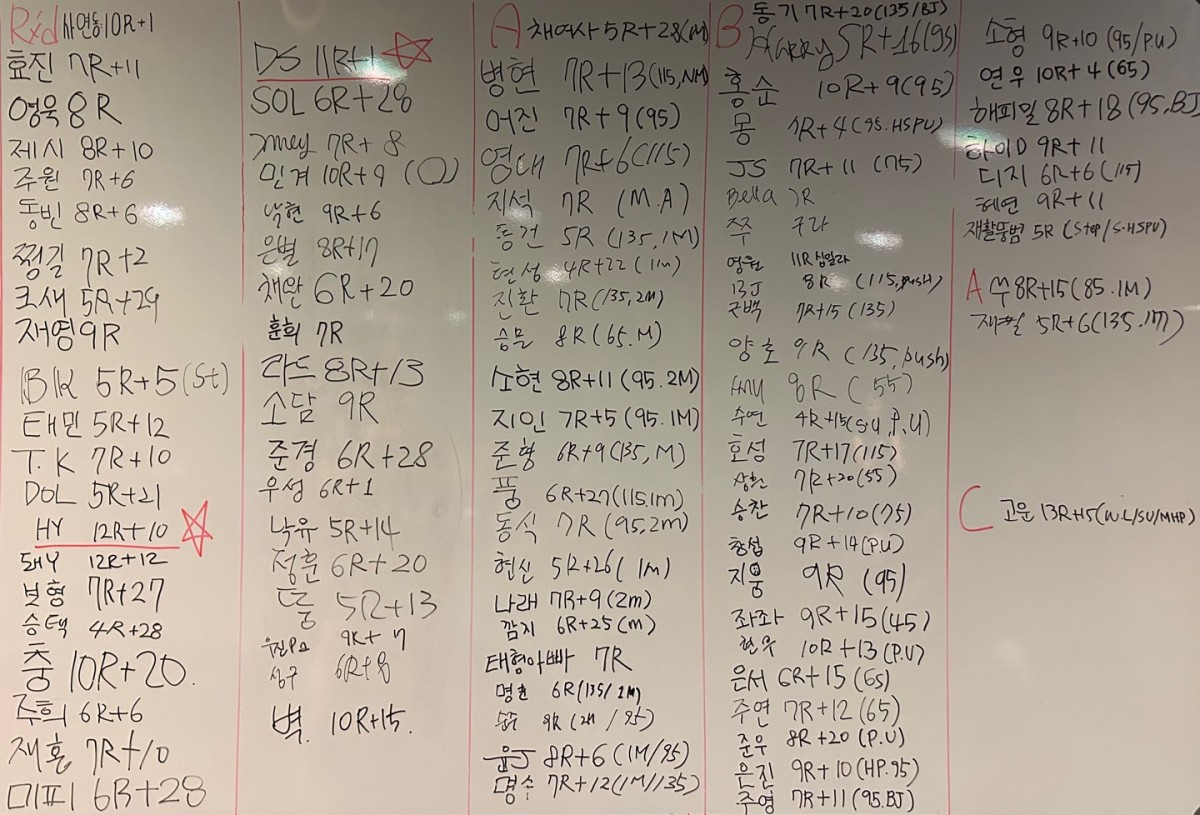 Rxd 사연동 10R+1
효진 7R+11
영욱 8R
제시 8R+10
주원 7R+6
동빈 8R+6
쩡길 7R+2
크새 5R+29
재영 9R
BK 5R+5 (St)
태민 5R+12
T.K 7R+10
DOL 5R+21
HY 12R+10
돼Y 12R+12
보형 7R+27
승택 4R+28
충 10R+20.
주희 6R+6
재훈 7R+10
미피 6R+28
DS 11R+1
SOL 6R+28
7R+8
민겨 10R+9 (O)
낙현 9R+6
은별 8R+17
채완 6R+20
훈희 7R
라드 8R+13
소담 9R
준경 6R+28
우성 6R+1
낙유 5R+14
정훈 6R+20
둥 5R+13
9R+7
상구 6R+8
벽. 10R+15.
A 채여사 5R+28(M)
병현 7R+13(115,NM)
어진 7R+9 (95)
영대 7R+6(115)
지석 7R (M.A)
동건 5R (135,1M)
현성 4R+22 (1m)
진환 7R(135,2M)
승물 8R (65.M)
소현 8R+11 (95.2M)
지인 7R+5 (95.1M)
준형 6R+9(135,M)
풍 6R+27(115.1m)
동식 7R (95,2m)
현신 5R+26( 1M)
나래 7R+9 (2m)
깜지 6R+25(m)
태형아빠 7R
명훈 6R(135/2M)
9R (2M/95)
윤J 8R+6 (1M/95)
명수 7R+12(1M/135)
B 동기 7R+20(135/BJ)
Harry 5R+16(95)
홍순 10R+9(95)
몽 7R+4(95.HSPU)
JS 7R+11 (75)
Bella 7R
쭈 구라
영원 11R 십일라
BJ 8R (115,push)
근백 7R+15 (135)
양호 9R (135,push)
8R (55)
수연 4R+15(SU,P.U)
호성 7R+17(115)
상헌 7R+20(55)
승찬 7R+10(75)
창섭 9R+14(P.U)
지웅 9R (95)
좌좌 9R+15(45)
현우 10R+13(P.U)
은서 6R+15 (65)
주연 7R+12 (65)
준우 8R+20 (P.U)
은진 9R+10 (HP.95)
주영 7R+11 (95.BJ)
소형 9R+10 (95/PU)
연우 10R+4 (65)
해피밀 8R+18 (95.BJ)
하이D 9R+11
디지 6R+6 (115)
혜연 9R+11
재활뚱범 5R (Step/S-HSPU)
A 쑤 8R+15(85.1M)
재필 5R+6(135.1M)
C 고운 13R+15(W.L/SU/MHP)